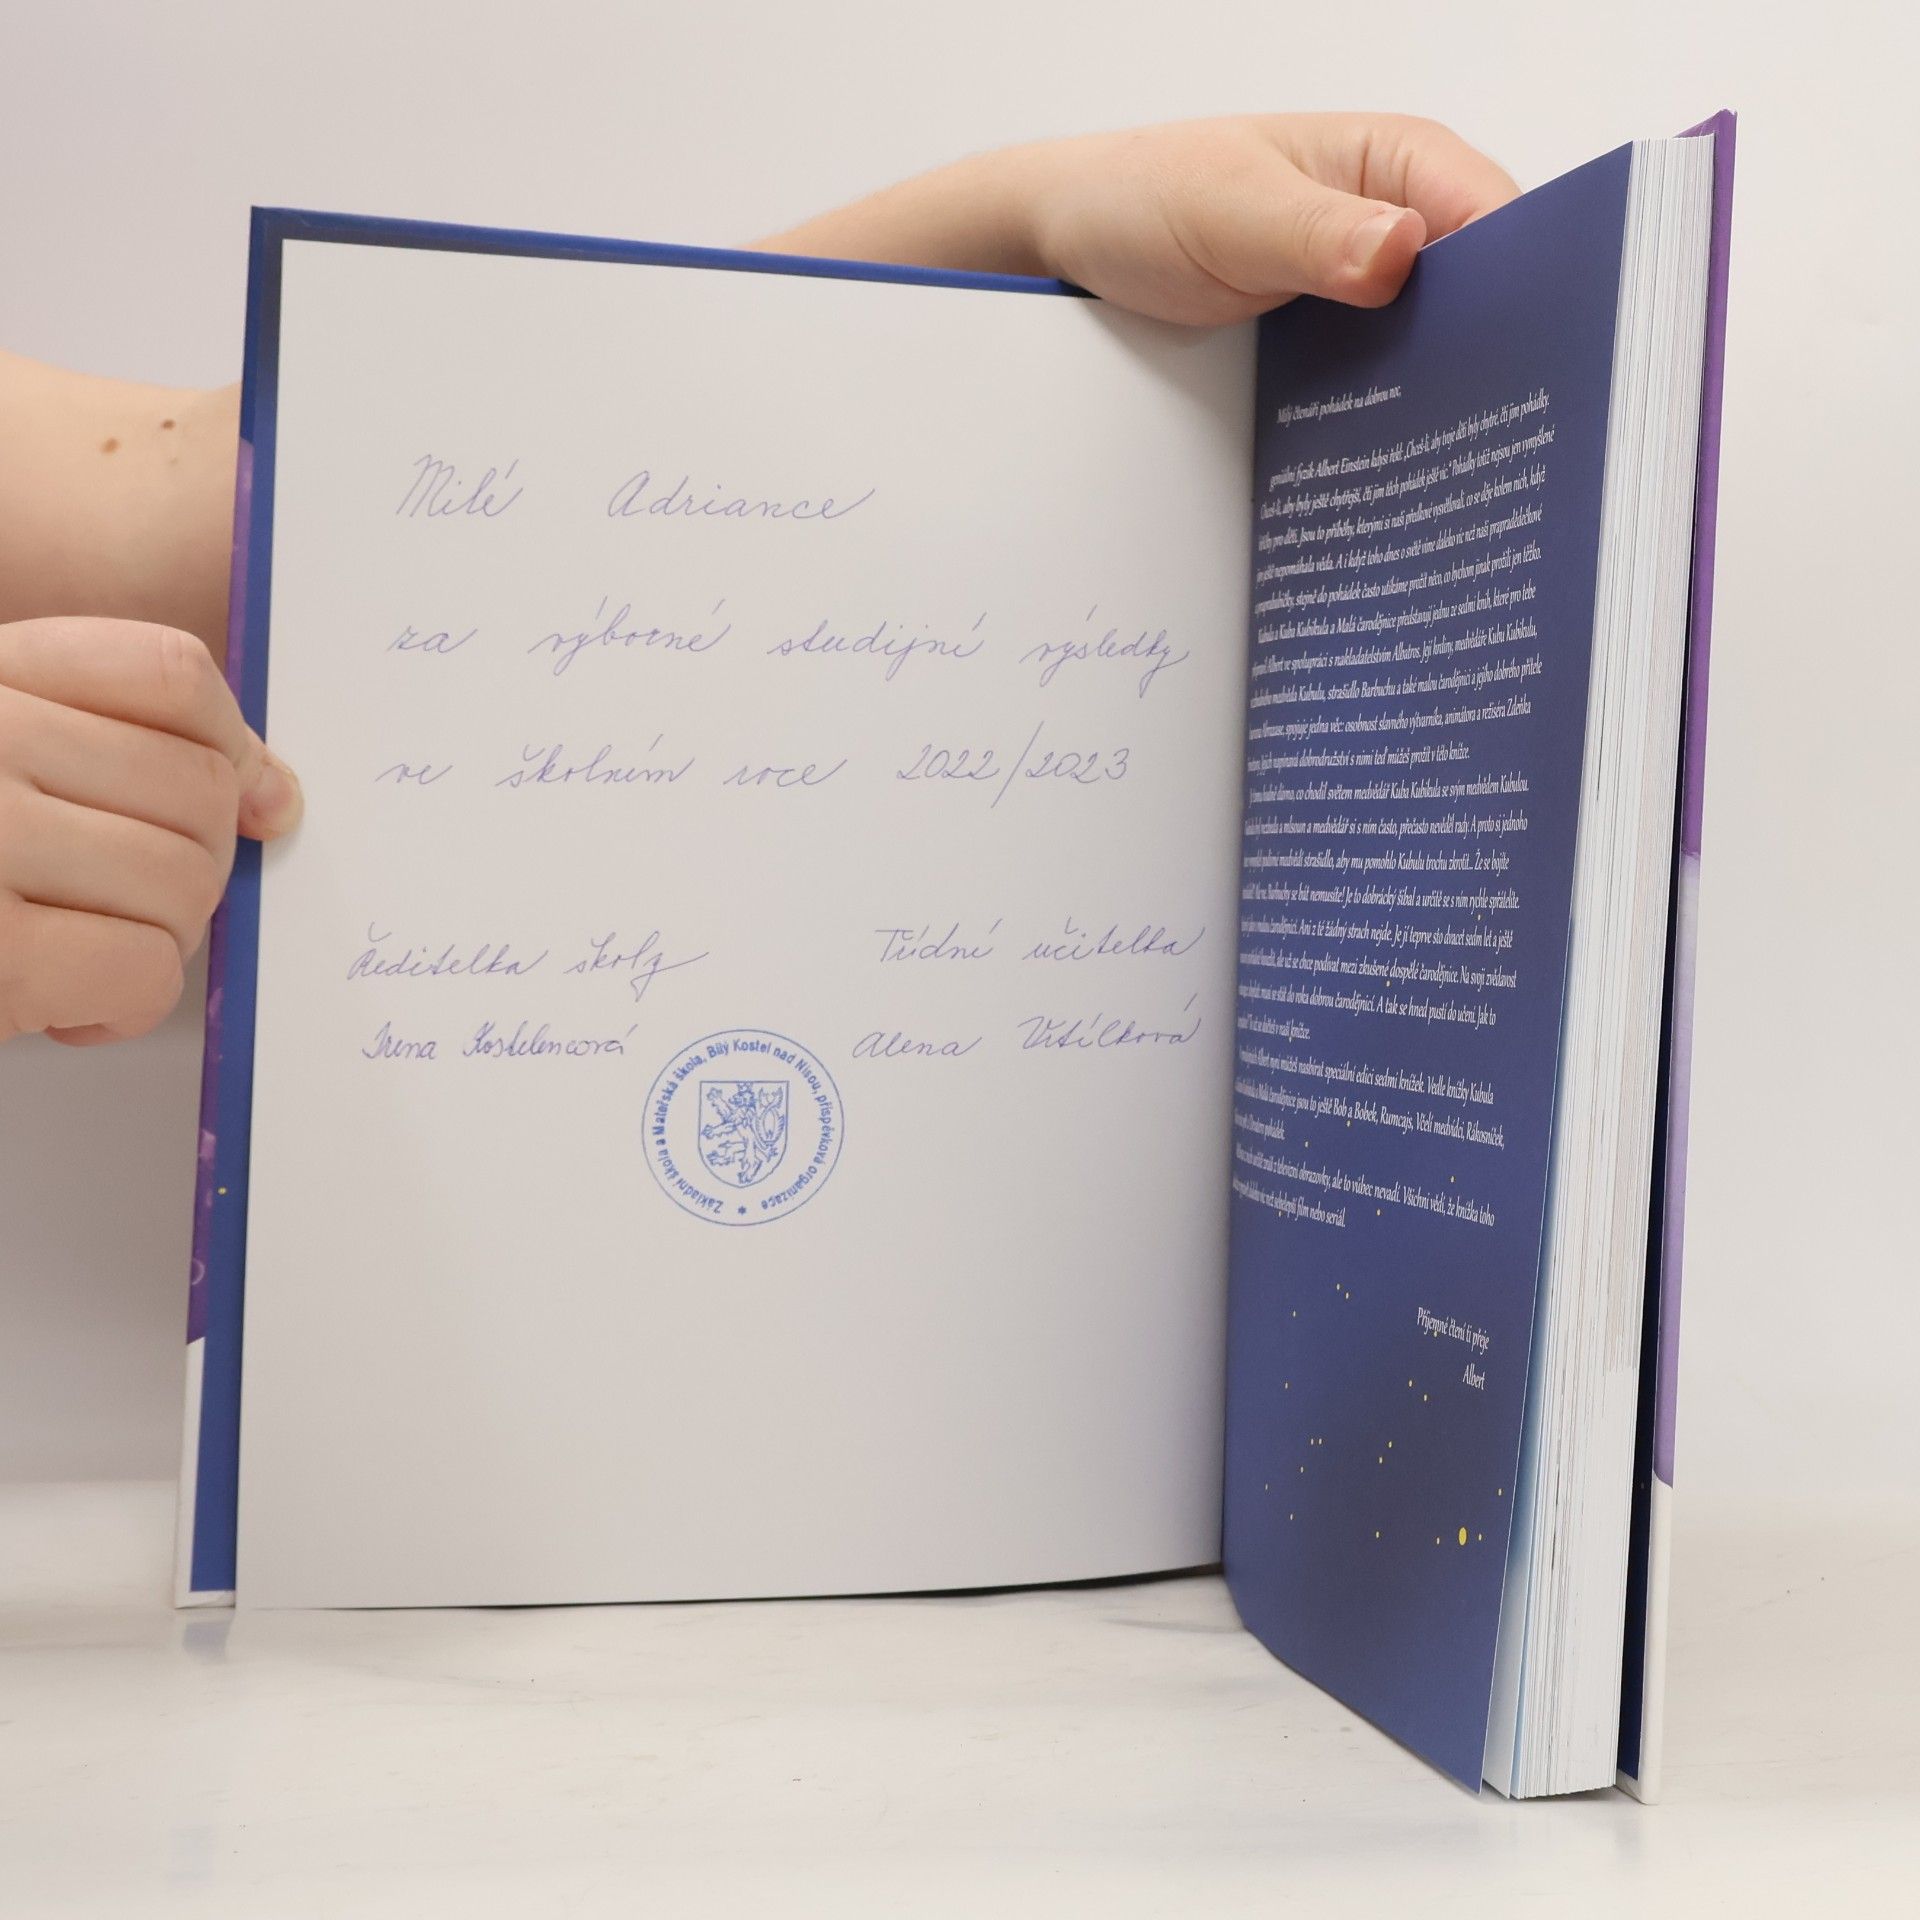 Milé Adriance
za výborné studijní výsledky
ve školním roce 2022/2023
Ředitelka školy
Třídní učitelka
Irena Kostelencová
Alena Vrtílková
Základní škola a Mateřská škola, Bílý Kostel nad Nisou, příspěvková organizace
Milý čtenáři pohádek na dobrou noc,
geniální fyzik Albert Einstein kdysi řekl: „Chceš-li, aby tvoje děti byly chytré, čti jim pohádky.
Chceš-li, aby byly ještě chytřejší, čti jim těch pohádek ještě víc.“ Pohádky totiž nejsou jen vymyšlené
příběhy pro děti. Jsou to příběhy, kterými si naši předkové vysvětlovali, co se děje kolem nich, když
jim ještě nepomáhala věda. A i když toho dnes o světě víme daleko víc než naši prapradědečkové
a praprababičky, stejně do pohádek často utíkáme prožít něco, co bychom jinak prožili jen těžko.
Kubula a Kuba Kubikula a Malá čarodějnice představují jednu ze sedmi knih, které pro tebe
připravil Albert ve spolupráci s nakladatelstvím Albatros. Její hrdiny, medvědáře Kubu Kubikulu,
medvěda Kubulu, strašidlo Barbuchu a také malou čarodějnici a jejího dobrého přítele
havrana Abraxase, spojuje jedna věc: osobnost slavného výtvarníka, animátora a režiséra Zdeňka
Smetany. Jejich napínavá dobrodružství s nimi teď můžeš prožít v této knížce.
Je tomu hodně dávno, co chodil světem medvědář Kuba Kubikula se svým medvědem Kubulou.
Kubula byl nezbeda a mlsoun a medvědář si s ním často, přečasto nevěděl rady. A proto si jednoho
dne vymyslel podivné medvědí strašidlo, aby mu pomohlo Kubulu trochu zkrotit... Že se bojíte
strašidel? Ale ne, Barbuchy se bát nemusíte! Je to dobrácký šibal a určitě se s ním rychle spřátelíte.
Stejně jako s malou čarodějnicí. Ani z té žádný strach nejde. Je jí teprve sto dvacet sedm let a ještě
neumí pořádně kouzlit, ale už se chce podívat mezi zkušené dospělé čarodějnice. Na svoji zvědavost
ale doplatí: musí se stát do roka dobrou čarodějnicí. A tak se hned pustí do učení. Jak to
dopadne? To už se dočteš v naší knížce.
V prodejnách Albert nyní můžeš nasbírat speciální edici sedmi knížek. Vedle knížky Kubula
a Kuba Kubikula a Malá čarodějnice jsou to ještě Bob a Bobek, Rumcajs, Včelí medvídci, Rákosníček,
pohádek.
Mnohé z nich určitě znáš z televizní obrazovky, ale to vůbec nevadí. Všichni vědí, že knížka toho
daleko víc než sebelepší film nebo seriál.
Příjemné čtení ti přeje
Albert